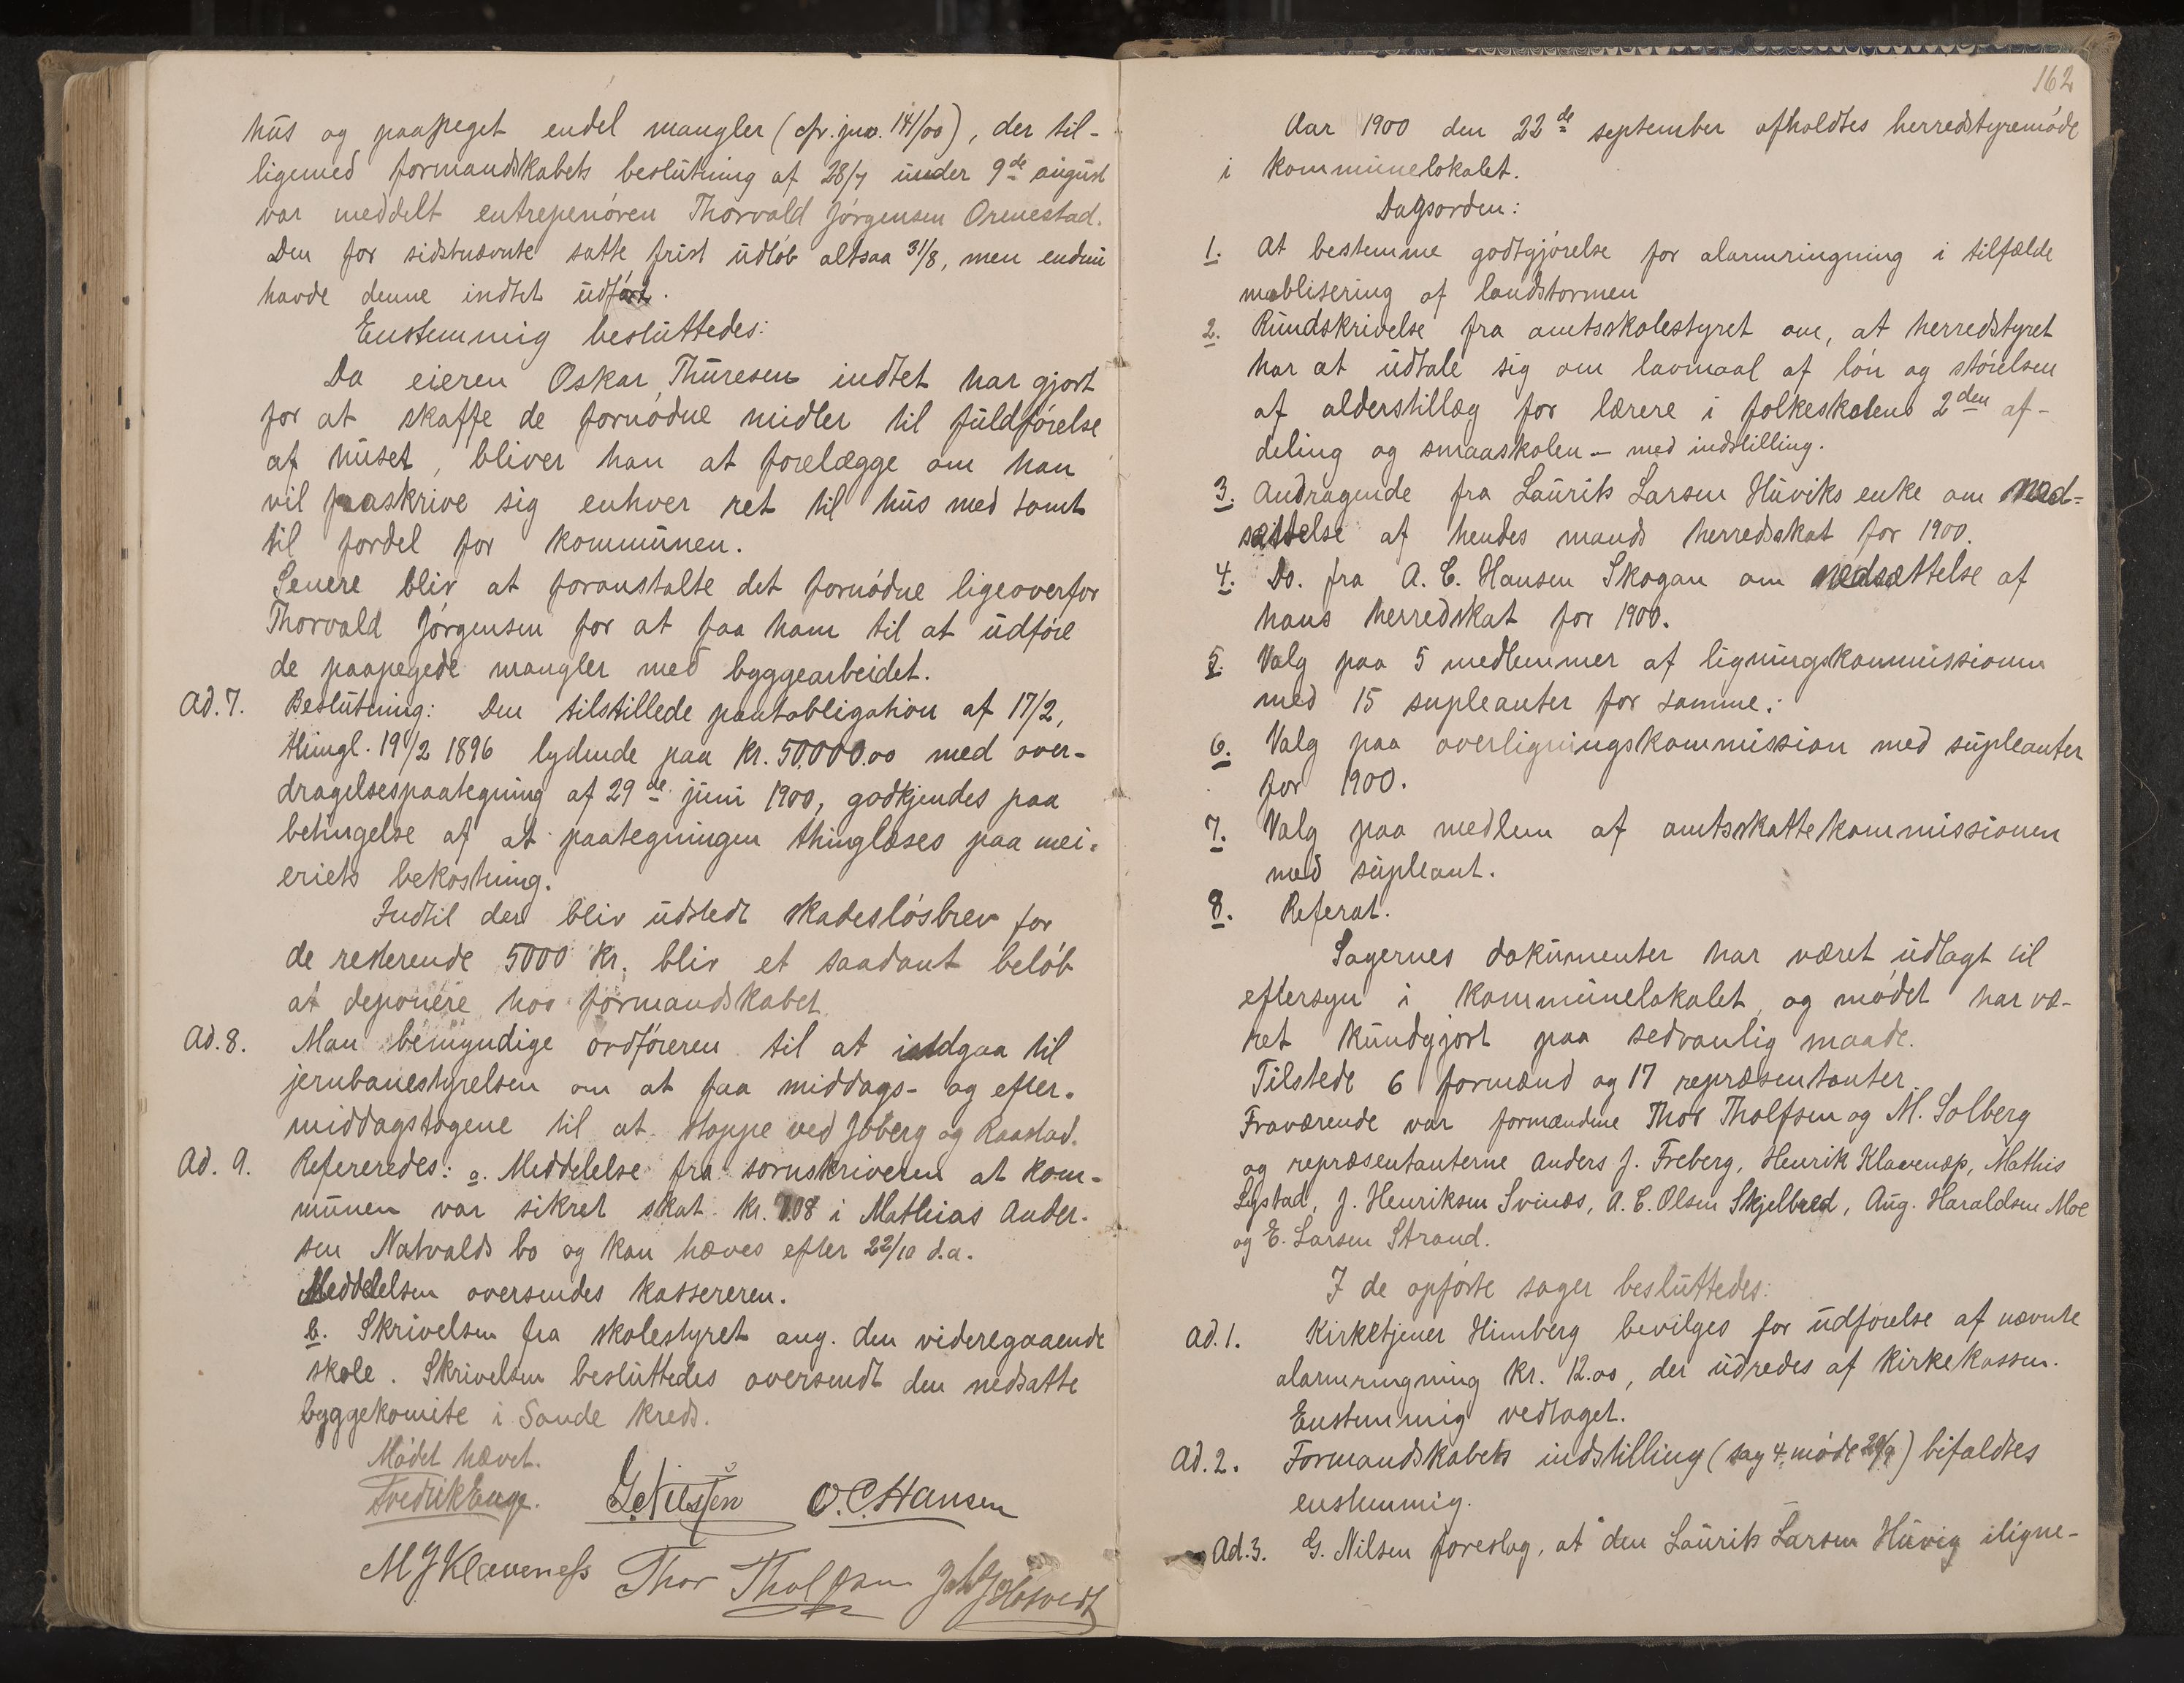 hus og paapeget endel mangler (cfr. jno. 141/00), der til-
ligemed formandskabets beslutning af 28/7 under 9de august
var meddelt entrepenøren Thorvald Jørgensen Orenestad.
Den for sidstnævnte satte frist udløb altsaa 31/8, men endnu
havde denne indtet udført.
Enstemmig besluttedes:
Da eieren Oskar Thuresen indtet har gjort
for at skaffe de fornødne midler til fuldførelse
af huset, bliver han at forelægge om han
vil fraskrive sig enhver ret til hus med tomt
til fordel for kommunen.
Senere bliv at foranstalte det fornødne ligeoverfor
Thorvald Jørgensen for at faa ham til at udføre
de paapegede mangler med byggearbeidet.
Ad. 7. Beslutning: Den tilstillede pantobligation af 17/2,
thingl. 19/2 1896 lydende paa kr. 50,000.00 med over-
dragelsespaategning af 29de juni 1900, godkjendes paa
betingelse af at paategningen thinglæses paa mei-
eriets bekostning.
Indtil der bliv udstedt skadesløsbrev for
de resterende 5000 kr. bliv et saadant beløb
at deponere hos formandskabet.
Ad. 8. Man bemyndige ordføreren til at indgaa til
jernbanestyrelsen om at faa middags- og efter-
middagstogene til at stoppe ved Joberg og Raastad.
Ad. 9. Refereredes: a. Meddelelse fra sorenskriveren at kom-
munen var sikret skat kr. 708 i Mathias Ander-
sen Natvalds bo og kan hæves efter 22/10 d.a.
Meddelelsen oversendes kassereren.
b. Skrivelsen fra skolestyret ang. den videregaaende
skole. Skrivelsen besluttedes oversendt den nedsatte
byggekomite i Sande kreds.
Mødet hævet.
Fredrik Enge. G. Nilssen O. C. Hansen
M J Klaveness Thor Tholfsen
162
Aar 1900 den 22de september afholdtes herredstyremøde
i kommunelokalet.
Dagsorden:
1. At bestemme godtgjørelse for alarmringning i tilfælde
moblisering af landstormen
2. Rundskrivelse fra amtsskolestyret om, at herredstyret
har at udtale sig om lavmaal af løn og størelsen
af alderstillæg for lærere i folkeskolens 2den af-
deling og smaaskolen - med indstilling.
3. Andragende fra Laurits Larsen Huviks enke om ned-
sættelse af hendes mands herredsskat for 1900.
4. Do. fra A. C. Hansen Skogan om nedsættelse af
hans herredskat for 1900.
5. Valg paa 5 medlemmer af ligningskommissionen
med 15 supleanter for samme.
6. Valg paa overligningskommission med supleanter
for 1900.
7. Valg paa medlem af amtsskattekommissionen
med supleant.
8. Referat.
Sagernes dokumenter har været udlagt til
eftersyn i kommunelokalet, og mødet har væ-
ret kundgjort paa sedvanlig maade.
Tilstede 6 formænd og 17 repræsentanter.
Fraværende var formændene Thor Tholfsen og M. Solberg
og repræsentanterne Anders J. Freberg, Henrik Klavenæs, Mathis
Lystad, J. Henriksen Svinæs, A. C. Olsen Skjelbred, Aug. Haraldsen Moe
og E. Larsen Strand.
I de opførte sager besluttedes:
Ad. 1. Kirketjener Himberg bevilges for udførelse af nævnte
alarmringning kr. 12.00, der udredes af kirkekassen.
Enstemmig vedtaget.
Ad. 2. Formandskabets indstilling (sag 4, møde 20/9) bifaldtes
enstemmig.
Ad. 3. G. Nilsen foreslog, at den Laurits Larsen Huvig iligne-